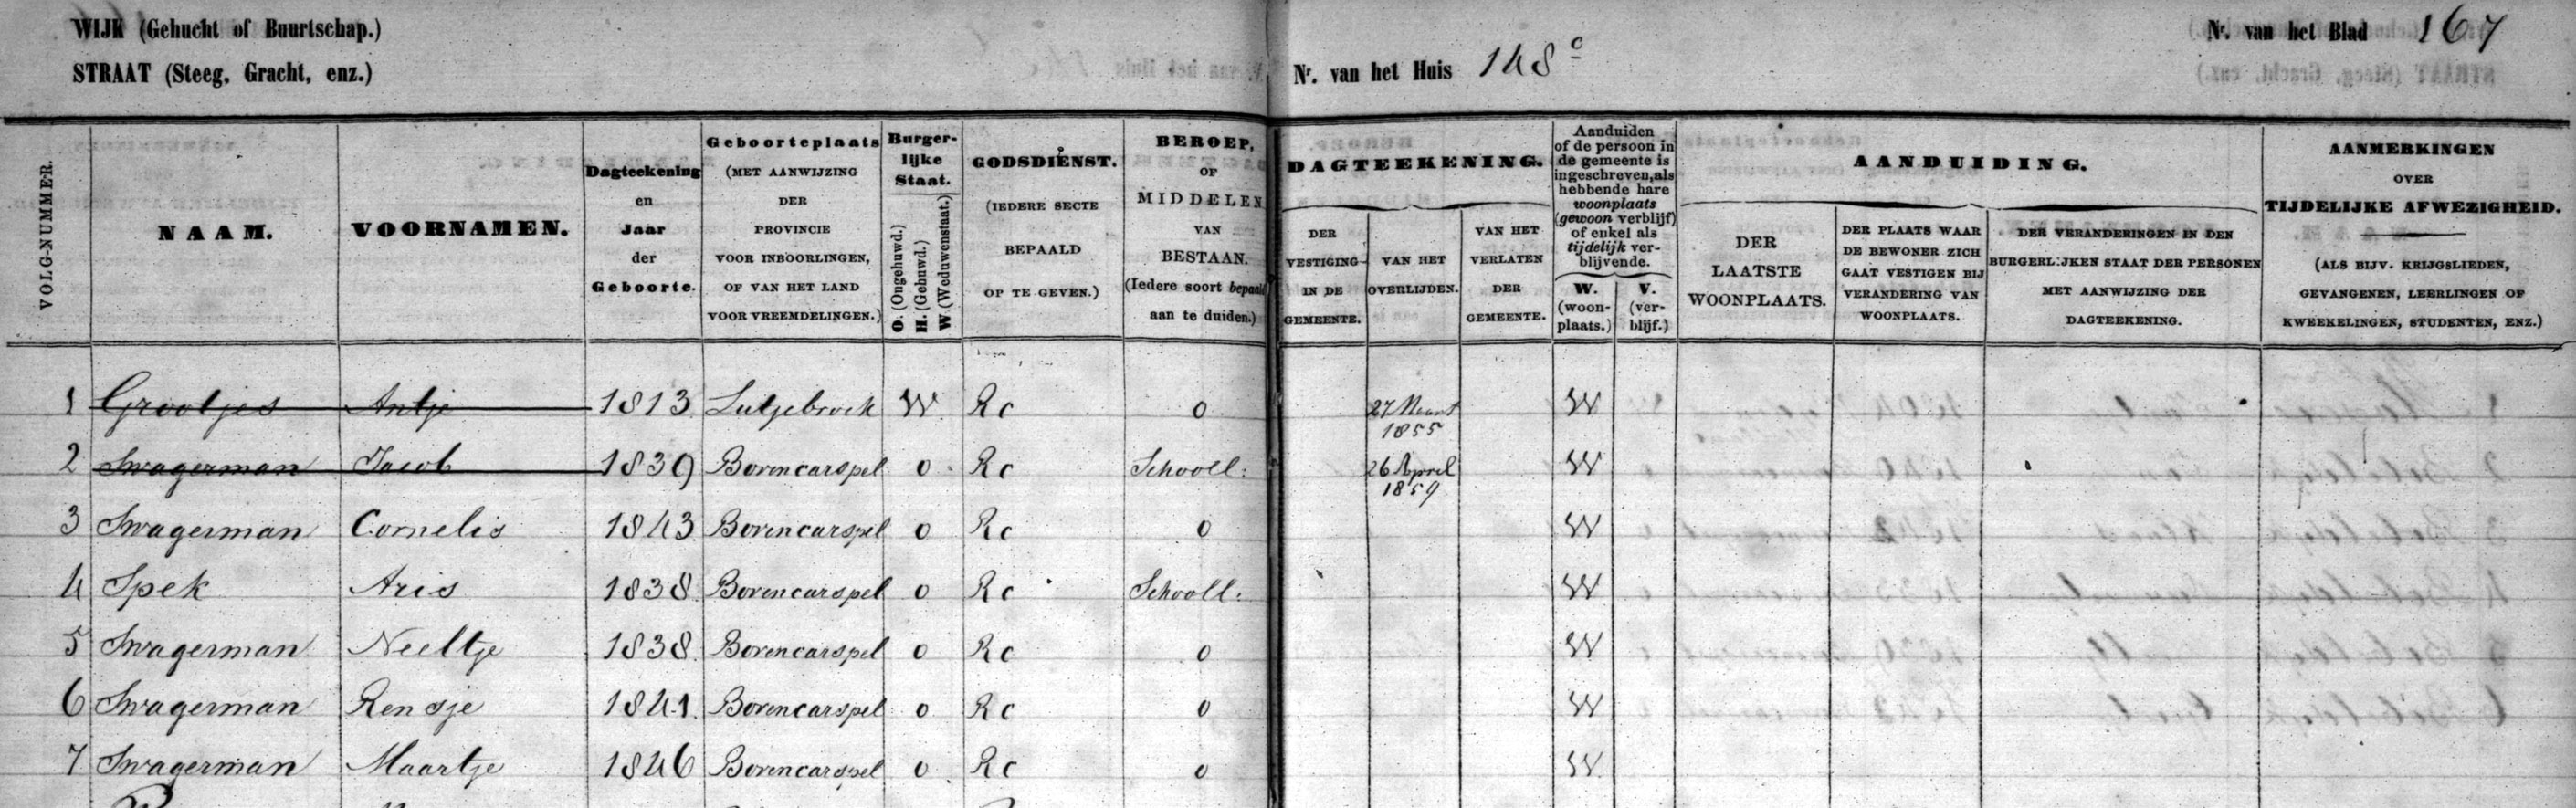 WIJK (Gehucht of Buurtschap.)
STRAAT (Steeg, Gracht, enz.)
Nr. van het Huis 148c
Nr. van het Blad 167
VOLG-NUMMER.
NAAM.
VOORNAMEN.
Dagteekening
en
Jaar
der
Geboorte.
Geboorteplaats
(MET AANWIJZING
DER
PROVINCIE
VOOR INBOORLINGEN,
OF VAN HET LAND
VOOR VREEMDELINGEN.)
Burger-
lijke
Staat.
O. (Ongehuwd.)
H. (Gehuwd.)
W (Weduwenstaat.)
GODSDIENST.
(IEDERE SECTE
BEPAALD
OP TE GEVEN.)
BEROEP,
OF
MIDDELEN
VAN
BESTAAN.
(Iedere soort bepaald
aan te duiden.)
DAGTEEKENING.
DER
VESTIGING
IN DE
GEMEENTE.
VAN HET
OVERLIJDEN.
VAN HET
VERLATEN
DER
GEMEENTE.
Aanduiden
of de persoon in
de gemeente is
ingeschreven, als
hebbende hare
woonplaats
(gewoon verblijf)
of enkel als
tijdelijk ver-
blijvende.
W.
(woon-
plaats.)
V.
(ver-
blijf.)
AANDUIDING.
DER
LAATSTE
WOONPLAATS.
DER PLAATS WAAR
DE BEWONER ZICH
GAAT VESTIGEN BIJ
VERANDERING VAN
WOONPLAATS.
DER VERANDERINGEN IN DEN
BURGERLIJKEN STAAT DER PERSONEN
MET AANWIJZING DER
DAGTEEKENING.
AANMERKINGEN
OVER
TIJDELIJKE AFWEZIGHEID.
(ALS BIJV. KRIJGSLIEDEN,
GEVANGENEN, LEERLINGEN OF
KWEEKELINGEN, STUDENTEN, ENZ.)
1 Grootjes Antje 1813 Lutjebroek W Rc o 27 Maart 1855 W
2 Swagerman Jacob 1839 Bovencarspel o Rc Schooll: 26 April 1859 W
3 Swagerman Cornelis 1843 Bovencarspel o Rc o W
4 Spek Aris 1838 Bovencarspel o Rc Schooll: W
5 Swagerman Neeltje 1838 Bovencarspel o Rc o W
6 Swagerman Rensje 1841 Bovencarspel o Rc o W
7 Swagerman Maartje 1846 Bovencarspel o Rc o W